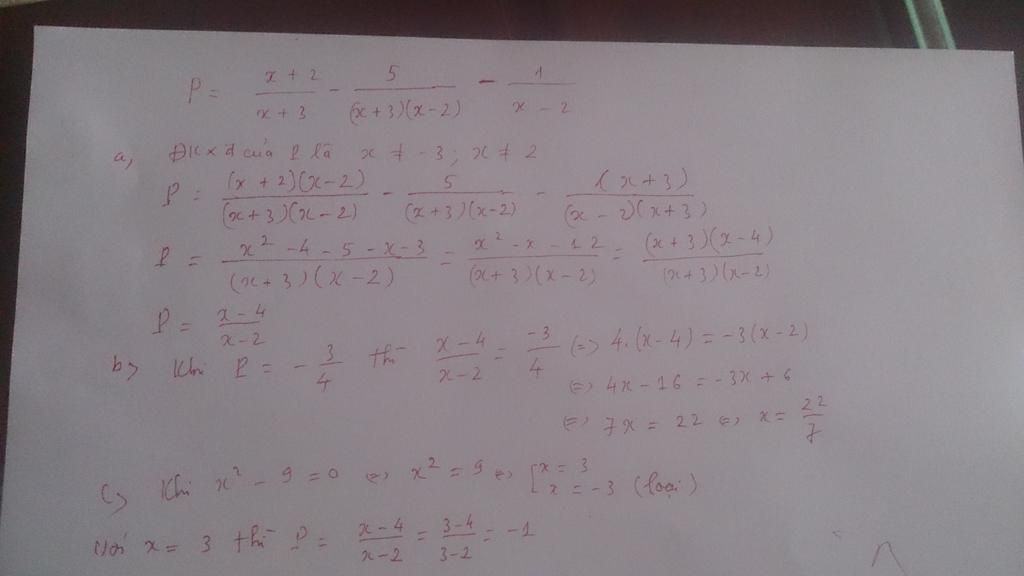 P = \frac{x+2}{x+3} - \frac{5}{(x+3)(x-2)} - \frac{1}{x-2}
a, ĐKxđ của P là x ≠ -3 ; x ≠ 2
P = \frac{(x+2)(x-2)}{(x+3)(x-2)} - \frac{5}{(x+3)(x-2)} - \frac{1(x+3)}{(x-2)(x+3)}
P = \frac{x^2-4-5-x-3}{(x+3)(x-2)} = \frac{x^2-x-12}{(x+3)(x-2)} = \frac{(x+3)(x-4)}{(x+3)(x-2)}
P = \frac{x-4}{x-2}
b, Khi P = -\frac{3}{4} thì \frac{x-4}{x-2} = \frac{-3}{4} <=> 4.(x-4) = -3(x-2)
<=> 4x-16 = -3x+6
<=> 7x = 22 <=> x = \frac{22}{7}
c, Khi x^2 - 9 = 0 <=> x^2 = 9 <=> [x = 3
x = -3 (loại)
với x = 3 thì P = \frac{x-4}{x-2} = \frac{3-4}{3-2} = -1